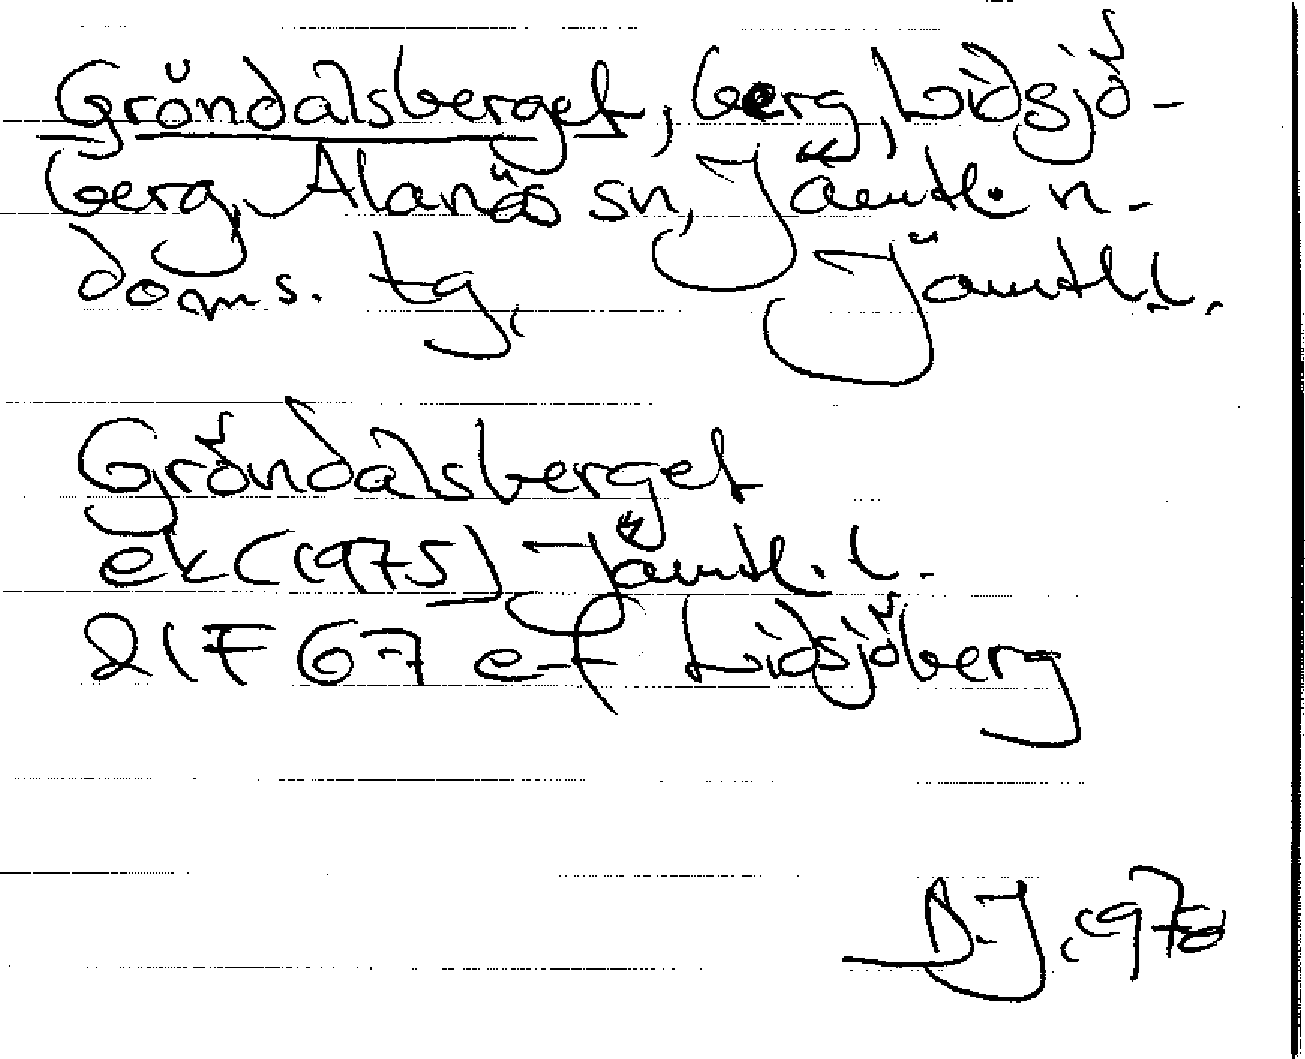 Gröndalsberget, berg, Lidsjö-
berg, Alanäs sn, Jämtl. n.
doms. tg, Jämtl. l.
Gröndalsberget
ek (1975) Jämtl. l.
21F 67 e-f Lidsjöberg
D.J. 1978